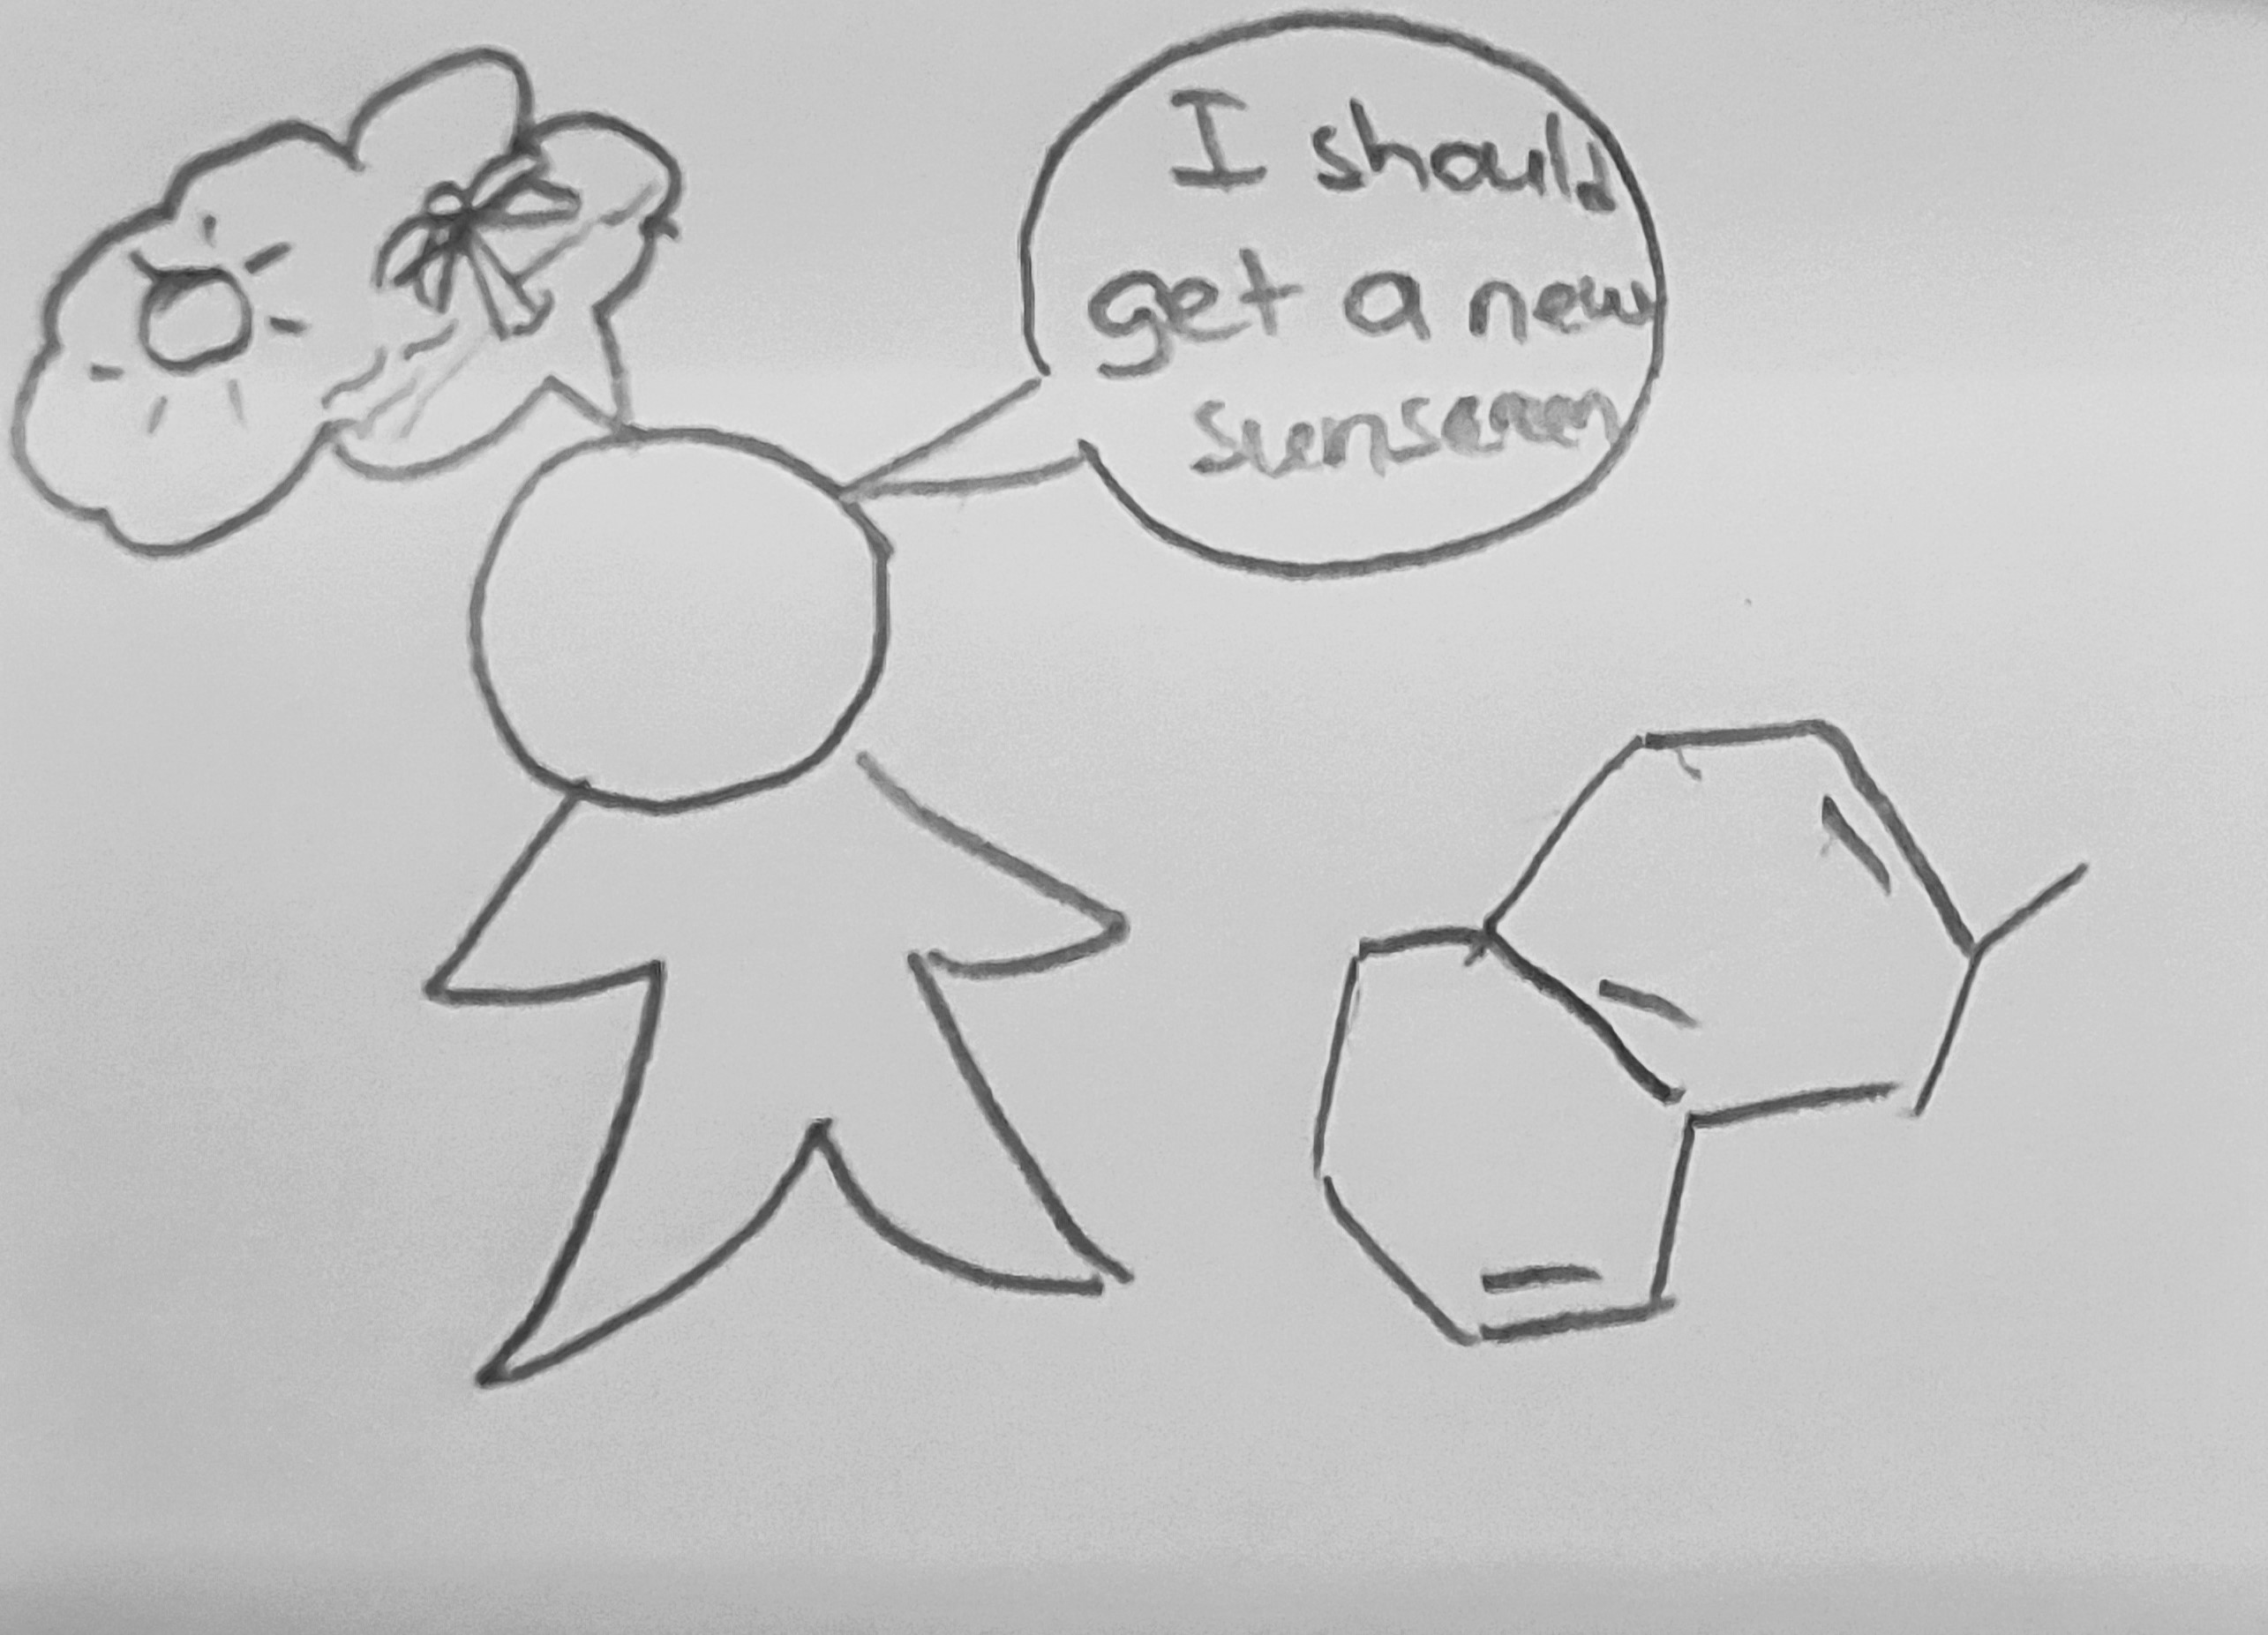 I should
get a new
sunscreen